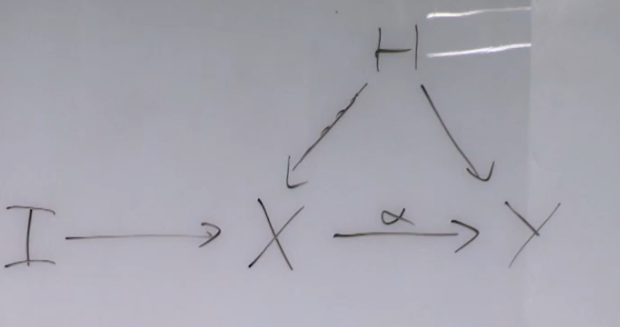 H
α
I X Y